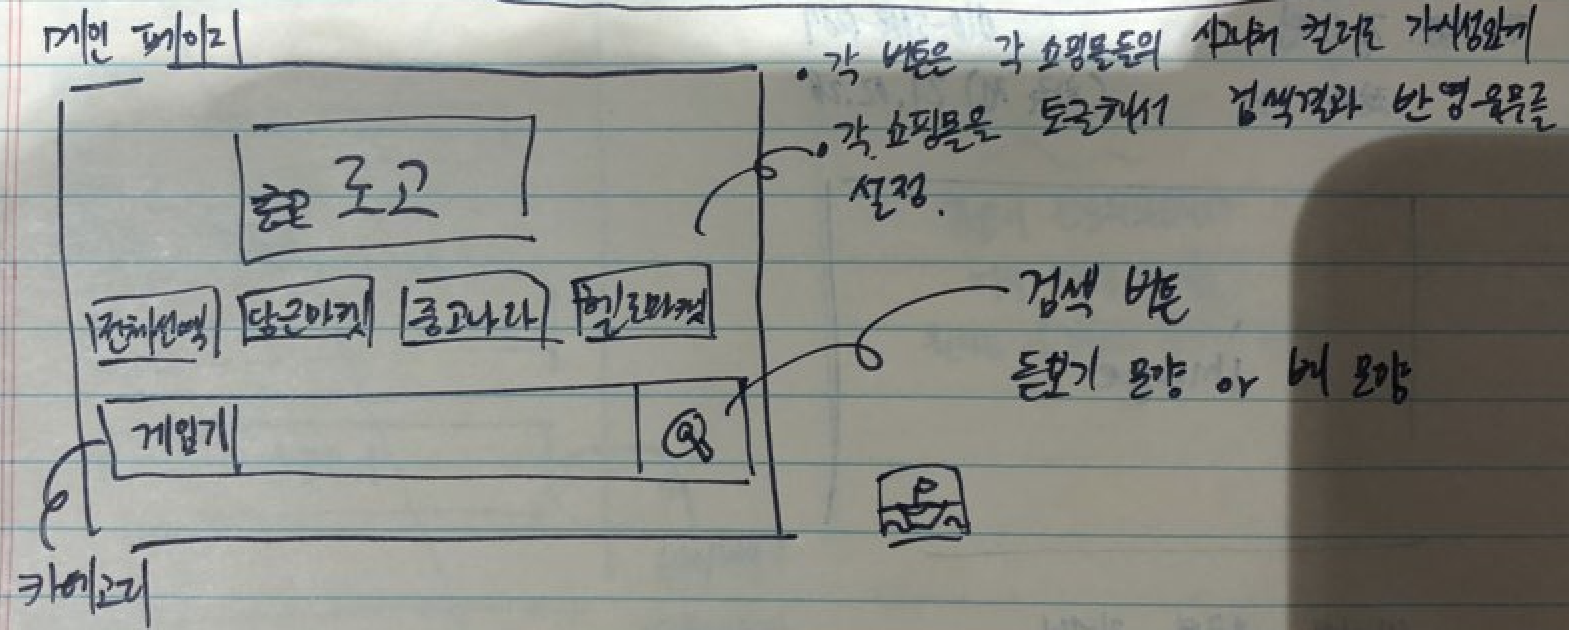 메인 페이지
로고
전체선택 당근마켓 중고나라 헬로마켓
게임기
카테고리
• 각 버튼은 각 쇼핑몰들의 시그니처 컬러로 가시성있게
• 각 쇼핑몰을 토글해서 검색결과 반영유무를
설정.
검색 버튼
돋보기 모양 or 배 모양